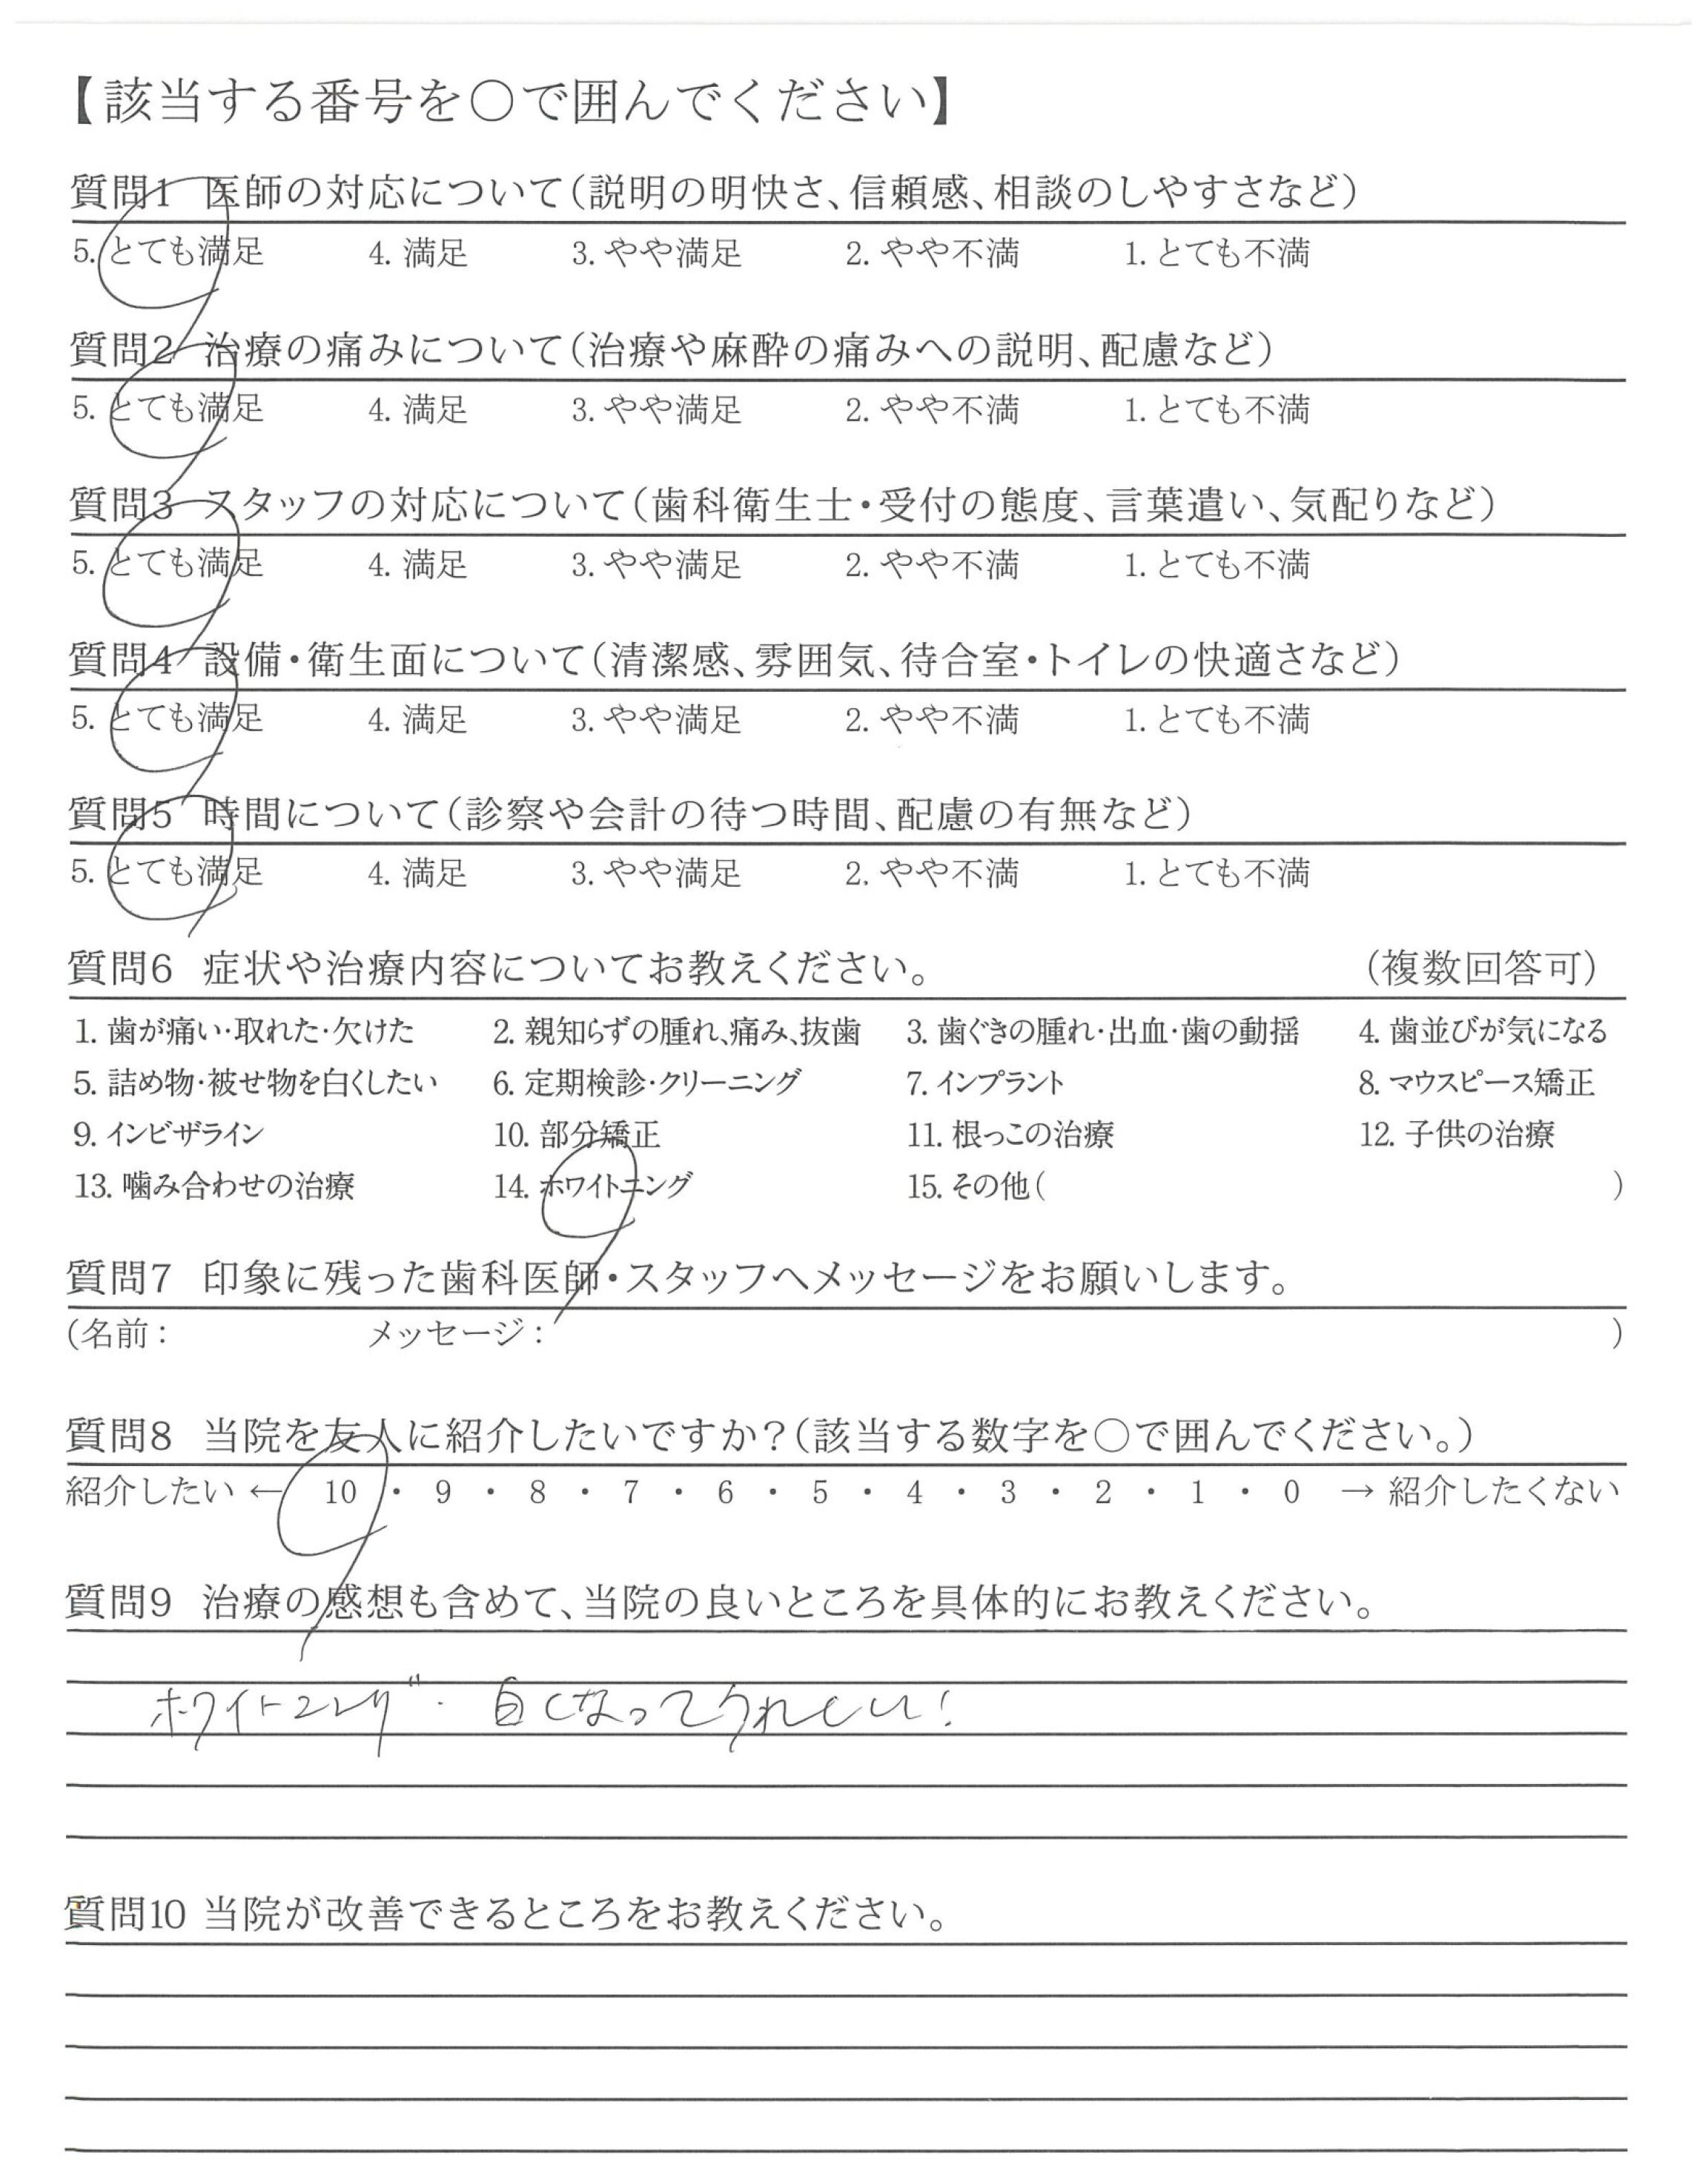 【該当する番号を○で囲んでください】
質問1 医師の対応について(説明の明快さ、信頼感、相談のしやすさなど)
5. とても満足 4. 満足 3. やや満足 2. やや不満 1. とても不満
質問2 治療の痛みについて(治療や麻酔の痛みへの説明、配慮など)
5. とても満足 4. 満足 3. やや満足 2. やや不満 1. とても不満
質問3 スタッフの対応について(歯科衛生士・受付の態度、言葉遣い、気配りなど)
5. とても満足 4. 満足 3. やや満足 2. やや不満 1. とても不満
質問4 設備・衛生面について(清潔感、雰囲気、待合室・トイレの快適さなど)
5. とても満足 4. 満足 3. やや満足 2. やや不満 1. とても不満
質問5 時間について(診察や会計の待つ時間、配慮の有無など)
5. とても満足 4. 満足 3. やや満足 2. やや不満 1. とても不満
質問6 症状や治療内容についてお教えください。 (複数回答可)
1. 歯が痛い・取れた・欠けた 2. 親知らずの腫れ、痛み、抜歯 3. 歯ぐきの腫れ・出血・歯の動揺 4. 歯並びが気になる
5. 詰め物・被せ物を白くしたい 6. 定期検診・クリーニング 7. インプラント 8. マウスピース矯正
9. インビザライン 10. 部分矯正 11. 根っこの治療 12. 子供の治療
13. 噛み合わせの治療 14. ホワイトニング 15. その他( )
質問7 印象に残った歯科医師・スタッフへメッセージをお願いします。
(名前: メッセージ: )
質問8 当院を友人に紹介したいですか?(該当する数字を○で囲んでください。)
紹介したい ← 10 ・ 9 ・ 8 ・ 7 ・ 6 ・ 5 ・ 4 ・ 3 ・ 2 ・ 1 ・ 0 → 紹介したくない
質問9 治療の感想も含めて、当院の良いところを具体的にお教えください。
ホワイトニング・白くなってうれしい!
質問10 当院が改善できるところをお教えください。